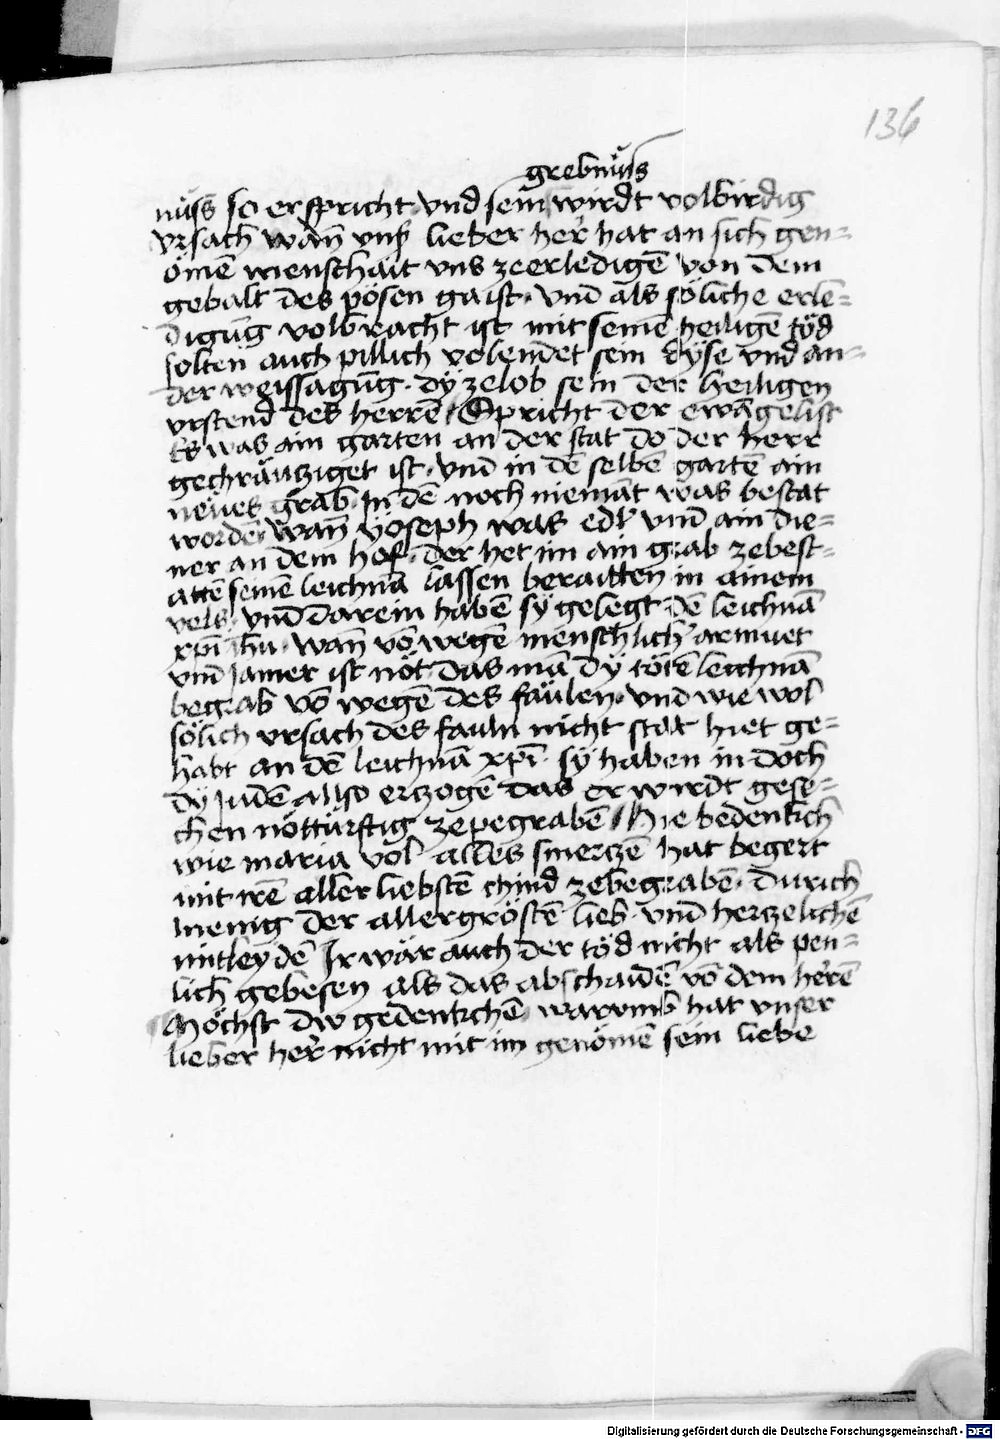 136
grebnüs
nüss so er spricht · vnd sein wirdt volbirdig
vrsach wan̄ vnß lieber her̄ hat an sich gen=
ömē menschait vns zcerledigē von dem
gebalt des pösen gaist · vnd als söliche erle=
digūg volbracht ist mit seinē heiligē töd
solten auch pillich volendet sein dyse vnd an=
der weissagūg · dÿ zelob sein der heiligen
vrstend des herrē Spricht der ewāgelist
Es was ain garten an der stat do der herr
gechräwcziget ist · vnd in dē selbē gartē ain
neües grab · In dē noch niemāt was bestat
wordē wan̄ yoseph was edl vnd ain die=
ner an dem hof · der het im ain grab zebest=
attē seinē leichnā lassen beraitten in ainem
vels · vnd darein habē sÿ gelegt dē leichnā
xp̄i ih̄u · wan̄ vō wegē menschlich armuet
vnd jamer ist nöt das mā dÿ tötē leichnā
begrab vō wegē des fäulen · vnd wie wol
sölich vrsach des fauln nicht stat hiet ge=
habt an dē leichnā xp̄i · sÿ haben in doch
dÿ judē allso erczogē das er wirdt gese=
chen nöttürftig zepegrabē Hie bedenkch
wie maria vol alles smerczē hat begert
mit irē aller liebstē chind zebegrabē · durich
menig der allergröstē lieb · vnd herczelichē
mitleydē Ir wär auch der töd nicht als pen=
lich gebesen als das abschaidē vō dem herē
Möchst dw gedenkchē warumb hat vnser
lieber her̄ nicht mit im genömē sein liebe
Digitalisierung gefördert durch die Deutsche Forschungsgemeinschaft - DFG